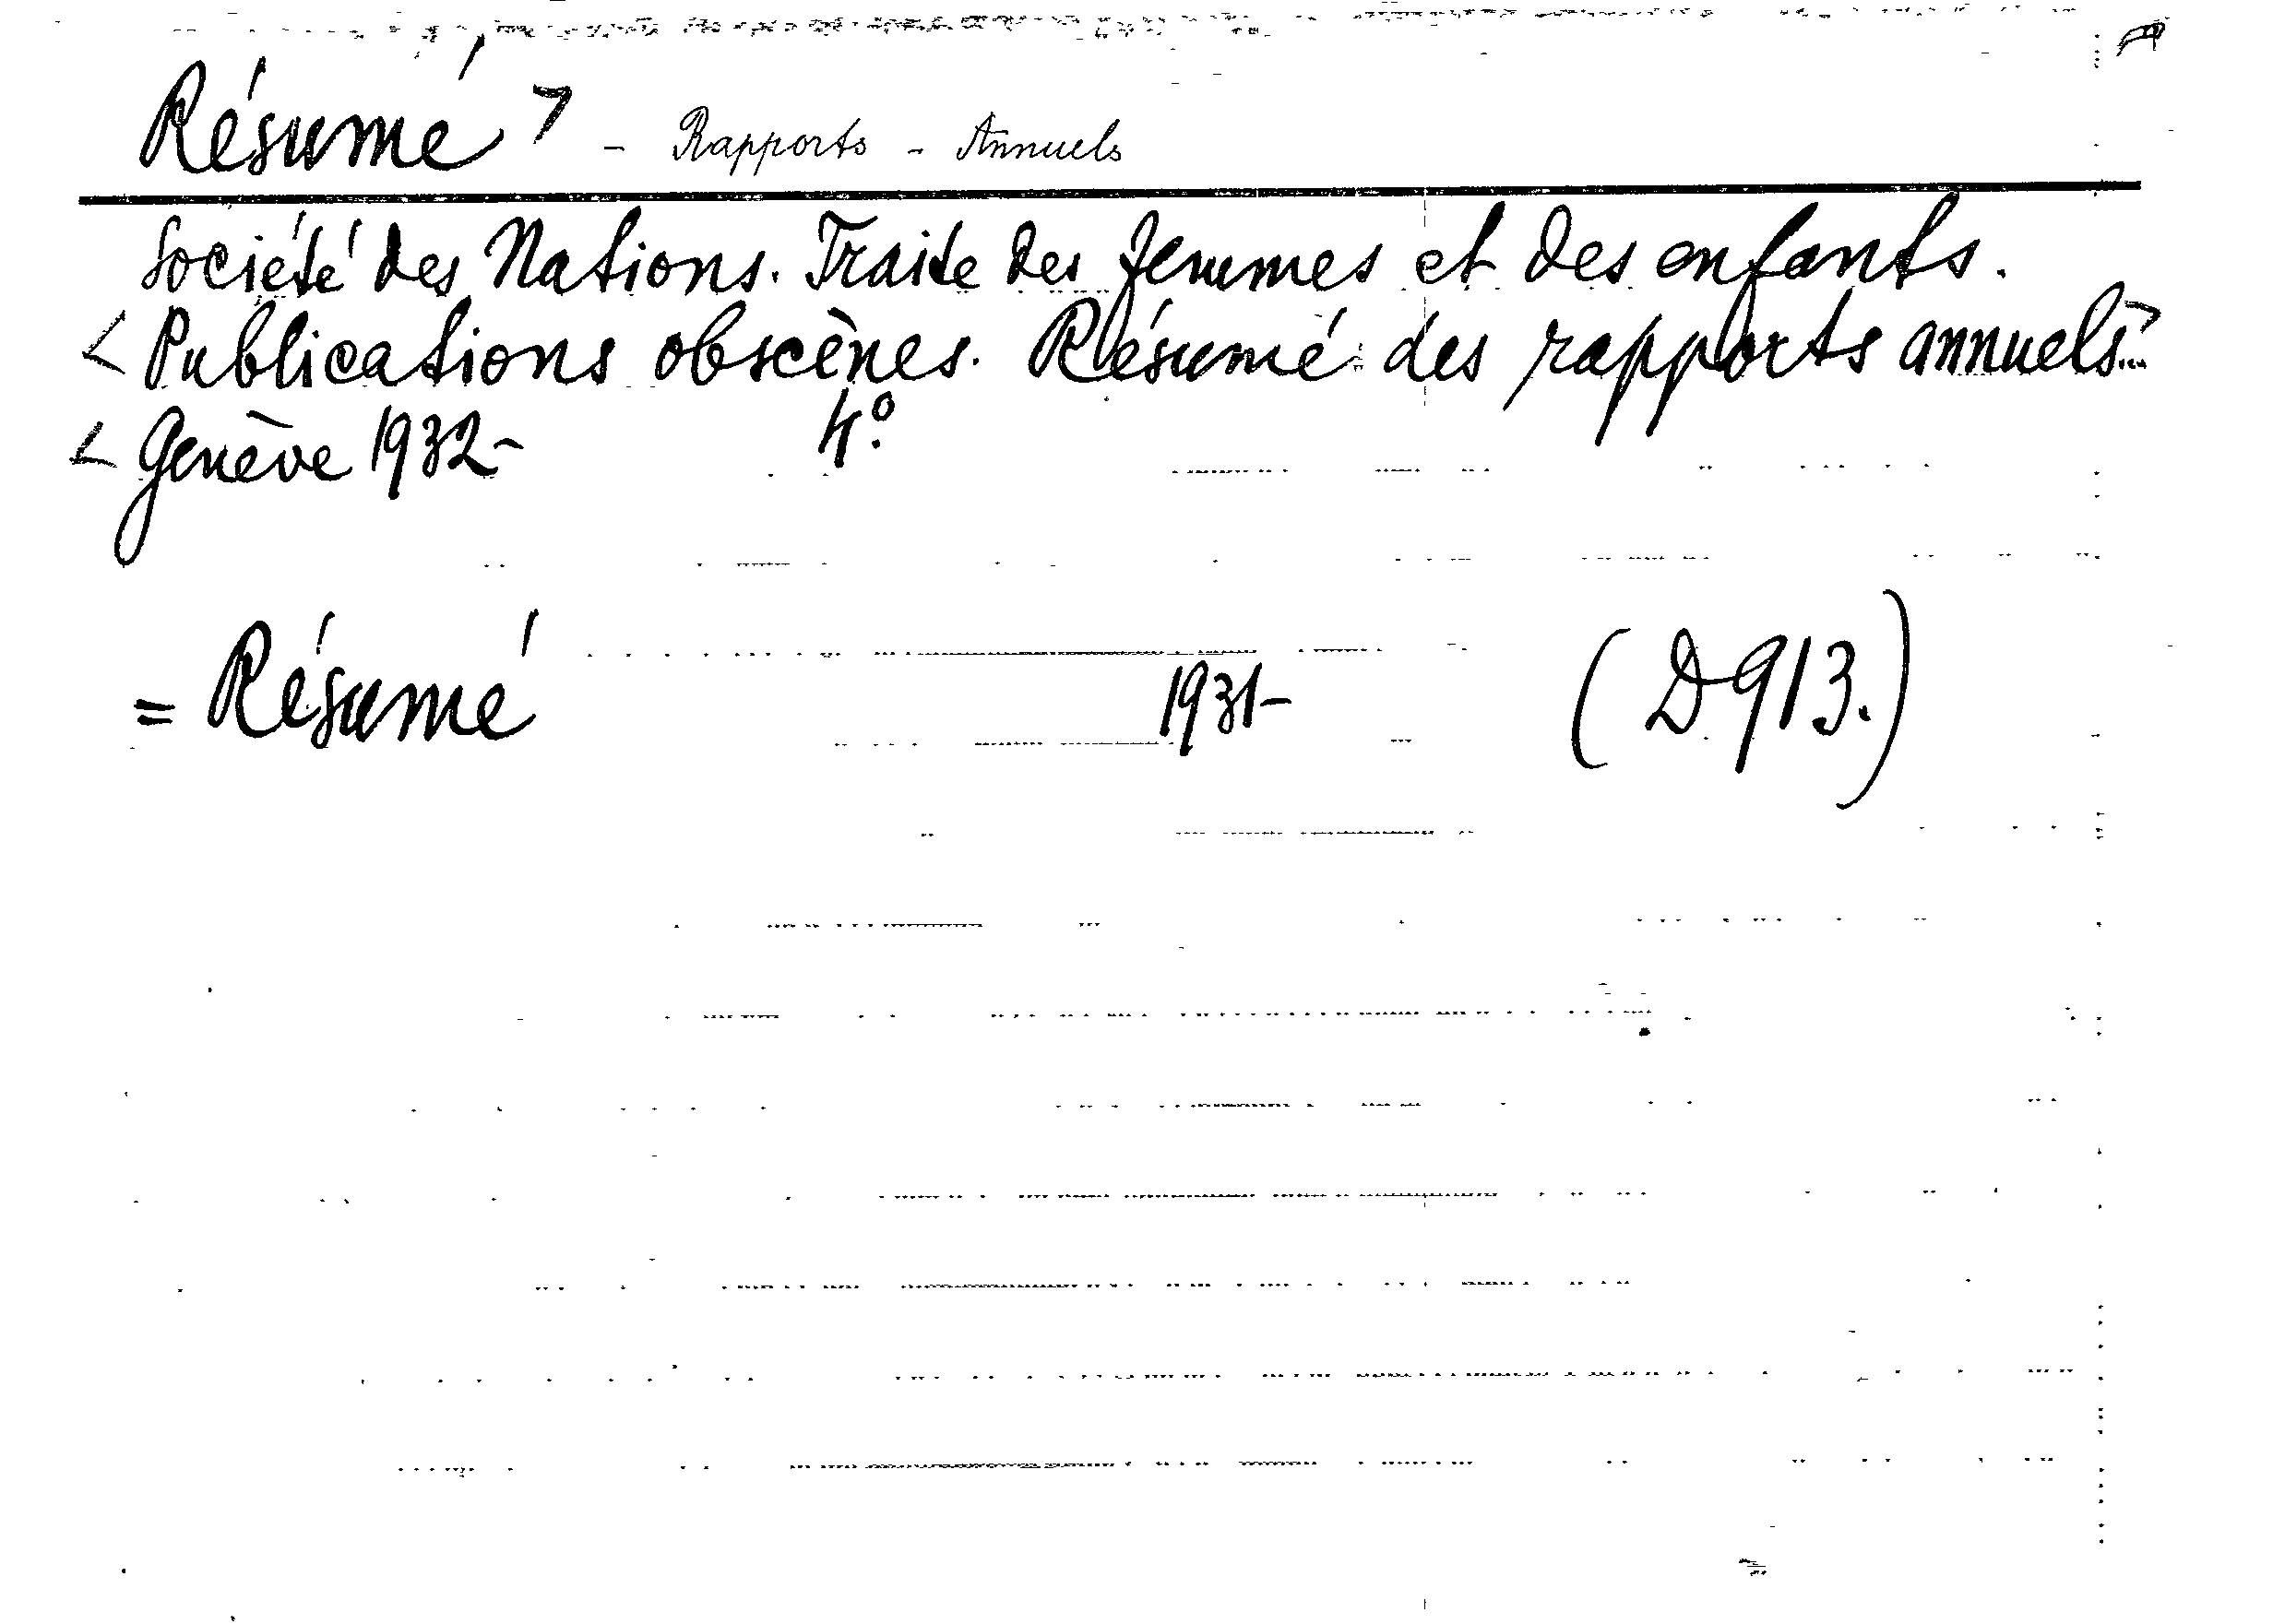 Résumé > - Rapports - Annuels
Société des Nations. Traite des femmes et des enfants.
< Publications obscènes. Résumé des rapports annuels... >
< Genève 1932- 4o.
= Résumé 1931- (D 913.)